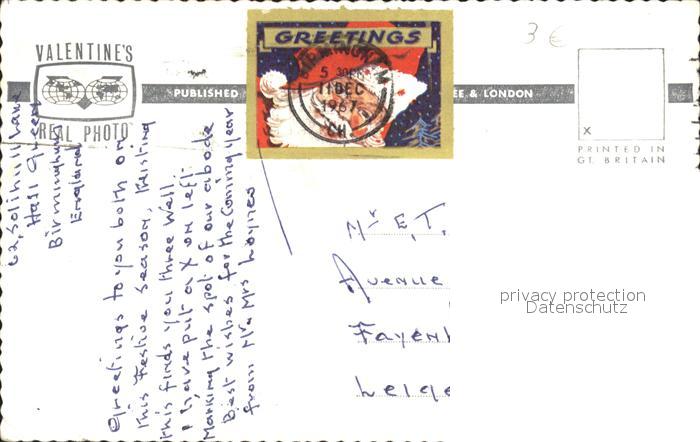 VALENTINE'S
REAL PHOTO
PUBLISHED
EE & LONDON
GREETINGS
BIRMINGHAM
5 30PM
11 DEC
1967
CH
3 €
X
PRINTED IN
GT. BRITAIN
62, Solihull Lane
Hall Green
Birmingham
England
Greetings to you both on
this Festive Season, trusting
this finds you three well
I have put a X on left
Marking the spot of our abode
Best wishes for the Coming year
from Mr & Mrs
Mr E, T.
Avenue
Fayen
privacy protection
Datenschutz